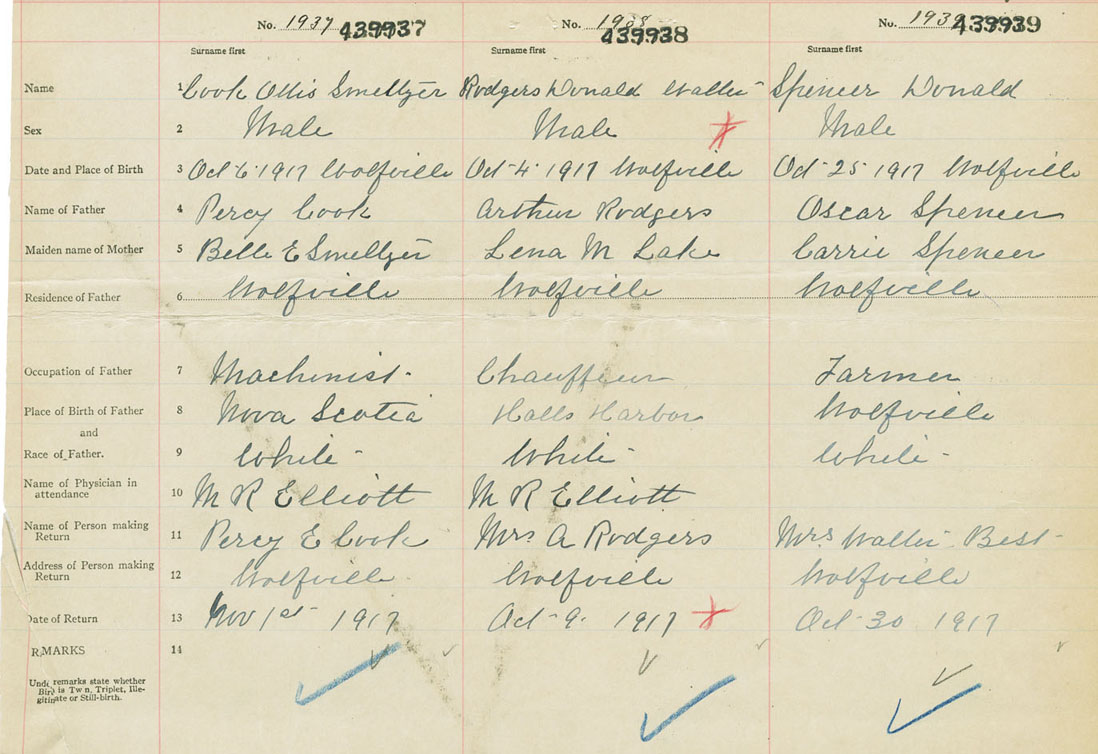 No. 1937 439937 No. 1938 439938 No. 1939 439939
Surname first Surname first Surname first
Name 1 Cook Ottis Smeltzer Rodgers Donald Walter Spencer Donald
Sex 2 Male Male Male
Date and Place of Birth 3 Oct 6 1917 Wolfville Oct 4 1917 Wolfville Oct 25 1917 Wolfville
Name of Father 4 Percy Cook Arthur Rodgers Oscar Spencer
Maiden name of Mother 5 Belle E Smeltzer Lena M Lake Carrie Spencer
Residence of Father 6 Wolfville Wolfville Wolfville
Occupation of Father 7 Machinist Chauffeur Farmer
Place of Birth of Father 8 Nova Scotia Halls Harbor Wolfville
and
Race of Father. 9 White White White
Name of Physician in
attendance 10 M R Elliott M R Elliott
Name of Person making
Return 11 Percy E Cook Mrs A Rodgers Mrs Walter Best
Address of Person making
Return 12 Wolfville Wolfville Wolfville
Date of Return 13 Nov 1st 1917 Oct 9 1917 Oct 30 1917
REMARKS 14
Under remarks state whether
Birth is Twin, Triplet, Ille-
gitimate or Still-birth.